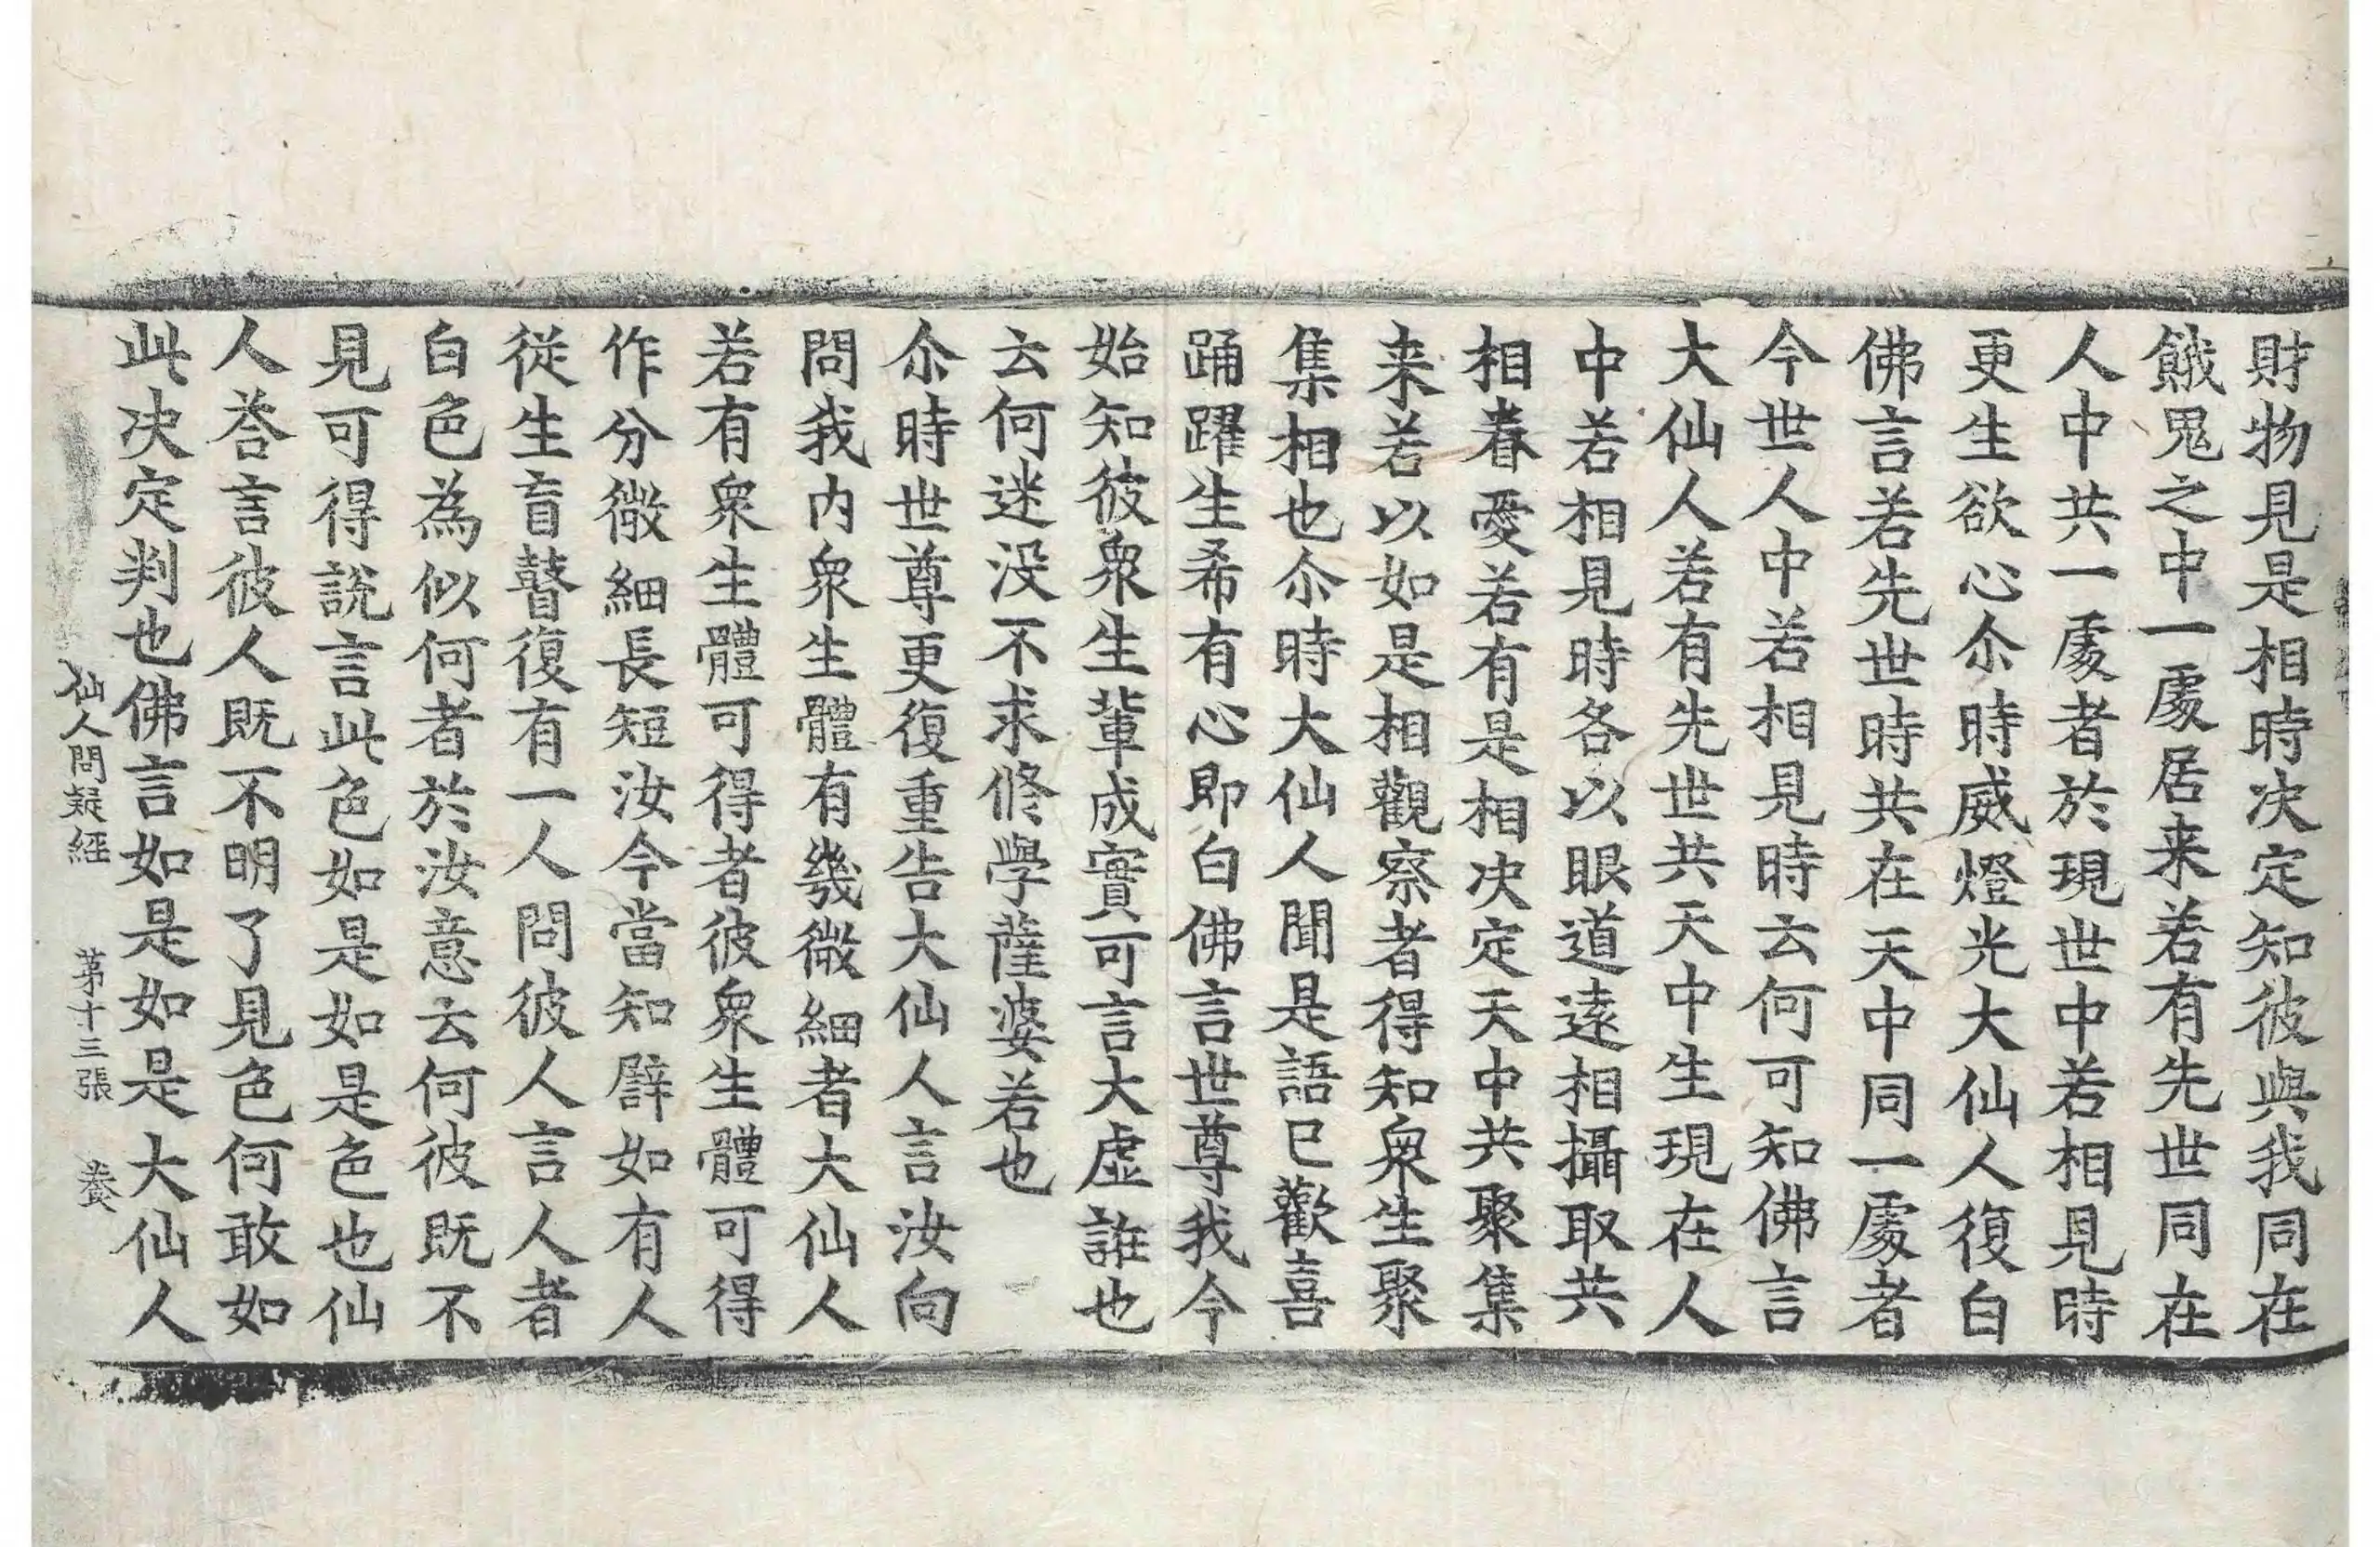 財物見是相時决定知彼與我同在
餓鬼之中一處居来若有先世同在
人中共一處者於現世中若相見時
更生欲心尒時威燈光大仙人復白
佛言若先世時共在天中同一處者
今世人中若相見時云何可知佛言
大仙人若有先世共天中生現在人
中若相見時各以眼道遠相攝取共
相眷愛若有是相决定天中共聚集
来若以如是相觀察者得知衆生聚
集相也尒時大仙人聞是語已歡喜
踊躍生希有心即白佛言世尊我今
始知彼衆生輩成實可言大虛誰也
云何迷没不求修學薩婆若也
尒時世尊更復重告大仙人言汝向
問我内衆生體有幾微細者大仙人
若有衆生體可得者彼衆生體可得
作分微細長短汝今當知譬如有人
從生盲瞽復有一人問彼人言人者
白色為似何者於汝意云何彼既不
見可得說言此色如是如是色也仙
人荅言彼人既不明了見色何敢如
此决定判也佛言如是如是大仙人
仙人問疑經 苐十三張 養